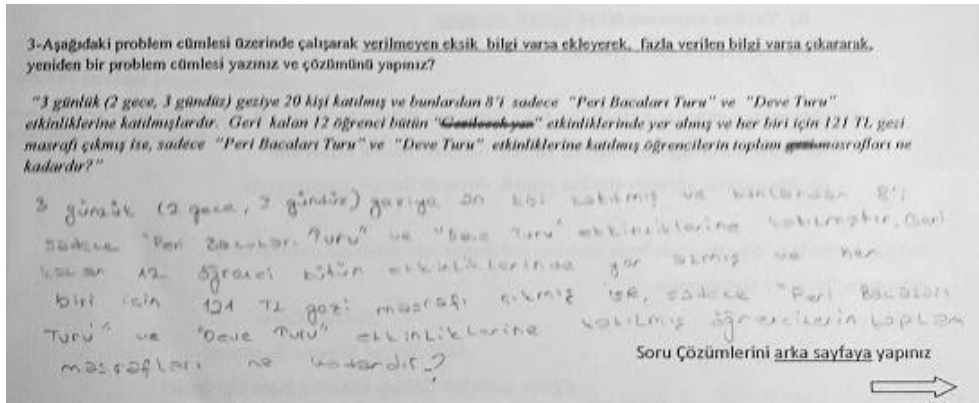 3-Aşağıdaki problem cümlesi üzerinde çalışarak verilmeyen eksik bilgi varsa ekleyerek, fazla verilen bilgi varsa çıkararak,
yeniden bir problem cümlesi yazınız ve çözümünü yapınız?
"3 günlük (2 gece, 3 gündüz) geziye 20 kişi katılmış ve bunlardan 8'i sadece "Peri Bacaları Turu" ve "Deve Turu"
etkinliklerine katılmışlardır. Geri kalan 12 öğrenci bütün " " etkinliklerinde yer almış ve her biri için 121 TL gezi
masrafı çıkmış ise, sadece "Peri Bacaları Turu" ve "Deve Turu" etkinliklerine katılmış öğrencilerin toplam masrafları ne
kadardır?"
3 günlük (2 gece, 3 gündüz) geziye kişi katılmış ve bunlardan 8'i
sadece "Peri Bacaları Turu" ve "Deve Turu" etkinliklerine katılmıştır. Geri
kalan 12 öğrenci bütün etkinliklerinde yer almış ve her
biri için 121 TL gezi masrafı çıkmış ise, sadece "Peri Bacaları
Turu" ve "Deve Turu" etkinliklerine katılmış öğrencilerin toplam
masrafları ne kadardır?
Soru Çözümlerini arka sayfaya yapınız